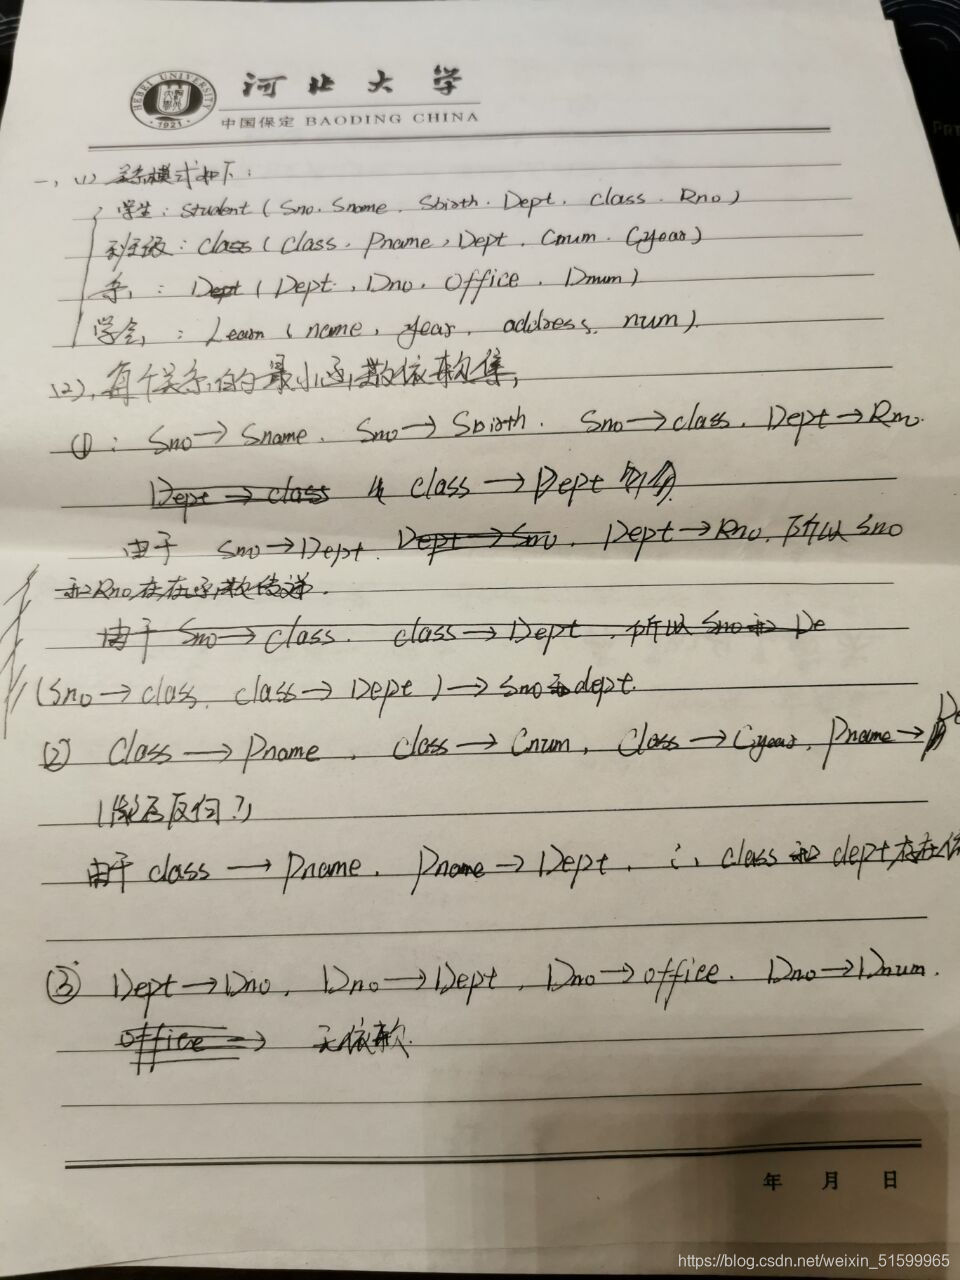 HEBEI UNIVERSITY
1921
河北大学
中国保定 BAODING CHINA
一、(1) 关系模式如下:
学生: Student ( Sno. Sname. Sbirth. Dept. Class. Rno )
班级: Class ( Class. Pname, Dept. Cnum. Cyear )
系: Dept ( Dept, Dno. Office. Dnum )
学会: Learn ( name, year, address, num )
(2). 每个关系的最小函数依赖集,
①: Sno → Sname. Sno → Sbirth. Sno → class. Dept → Rno.
Dept → class class → Dept
由于 Sno → Dept. Dept → Sno, Dept → Rno. 所以 Sno
和Rno存在函数传递.
由于 Sno → class. class → Dept. 所以 Sno和 De
(Sno → class, class → Dept ) → Sno和dept.
② Class → Pname, Class → Cnum, Class → Cyear, Pname → De
由于 class → Pname. Pname → Dept, ∴ class 和 dept存在
③ Dept → Dno, Dno → Dept, Dno → office. Dno → Dnum.
office → 无依赖.
年 月 日
https://blog.csdn.net/weixin_51599965